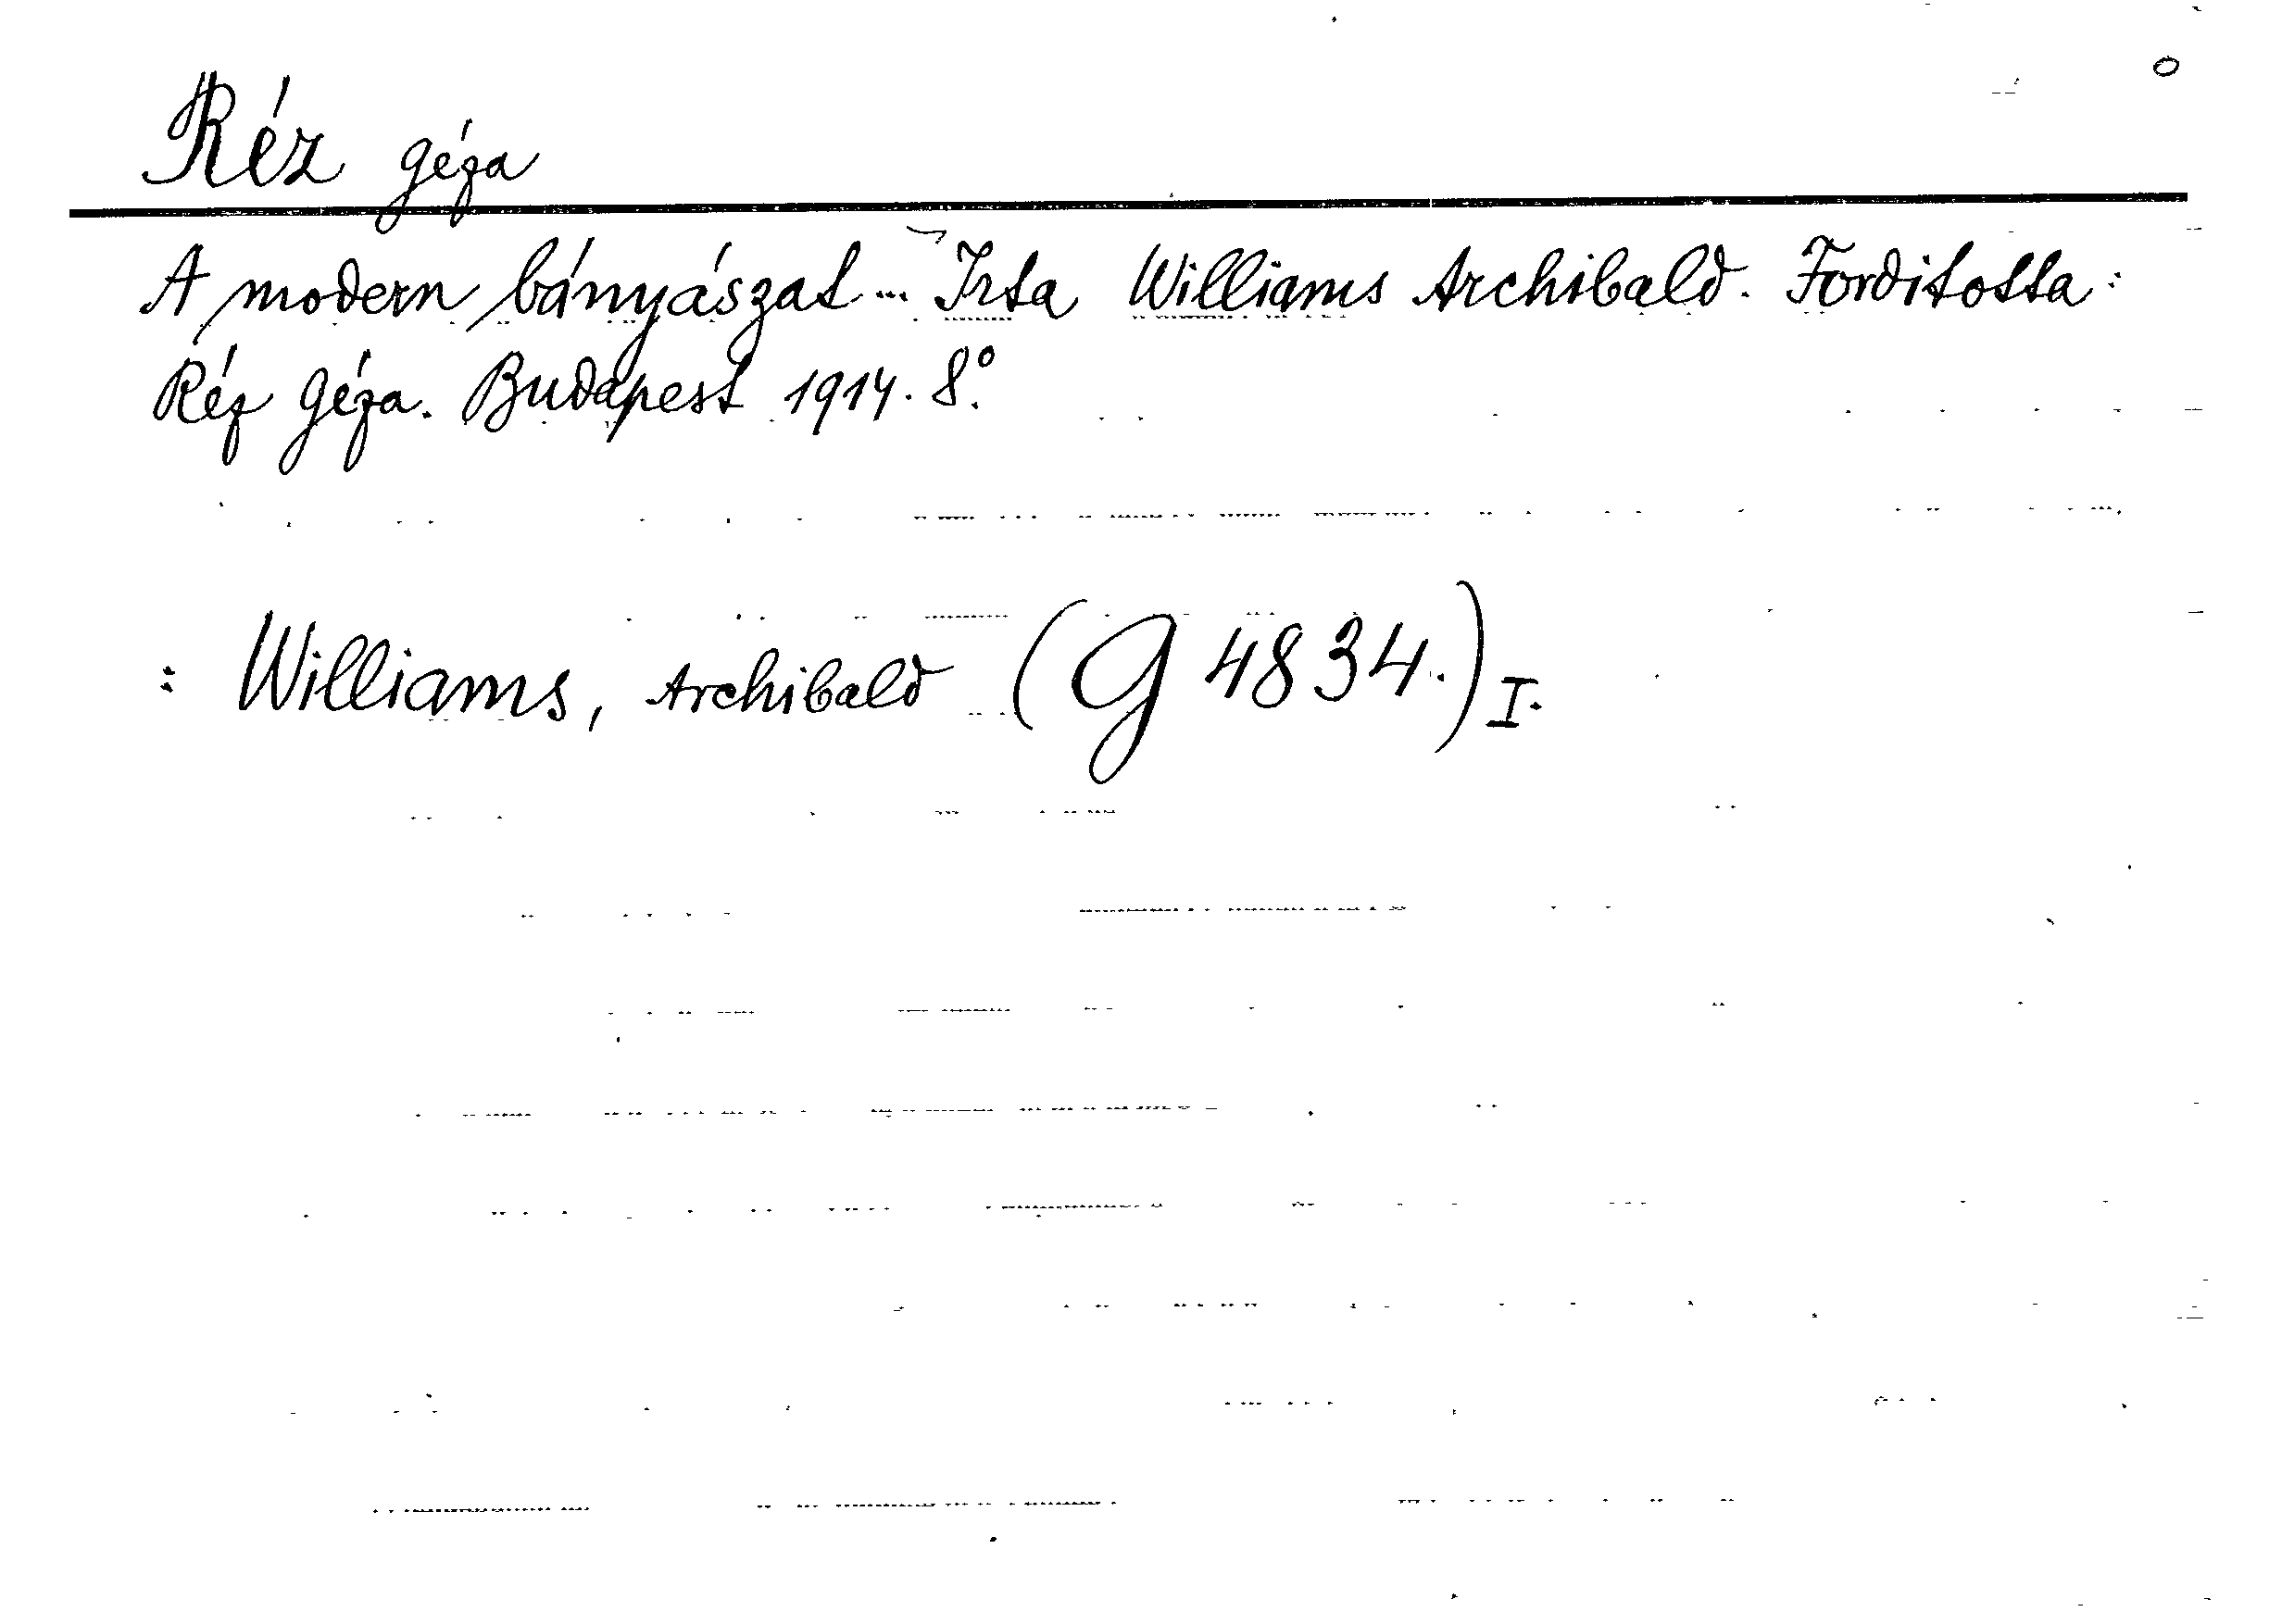 Réz Géza
A modern bányászat... Irta Williams Archibald. Forditotta:
Réz Géza. Budapest 1914. 8°.
: Williams, Archibald (G 4834.) I.